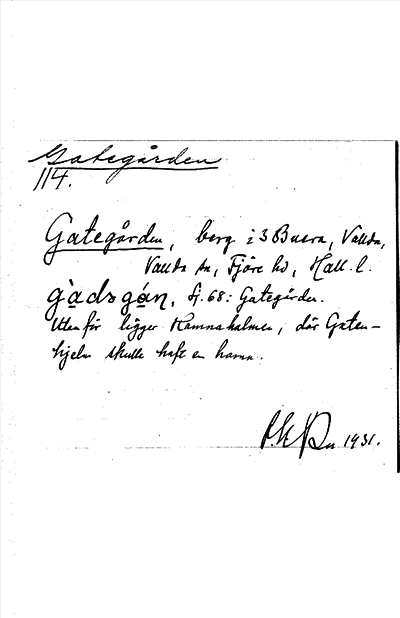 Gategården
114.
Gategården, berg i 3 Buera, Vallda,
Vallda sn, Fjäre hd, Hall. l.
gàdsgán, Sj. 68: Gategården.
Utanför ligger Hamnaholmen, där Gaten-
hjelm skulle haft en hamn.
1931.